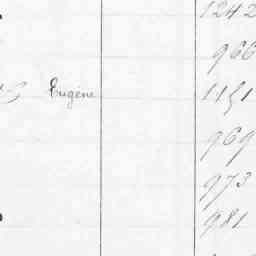 1242
966
Eugène 1151
969
973
981